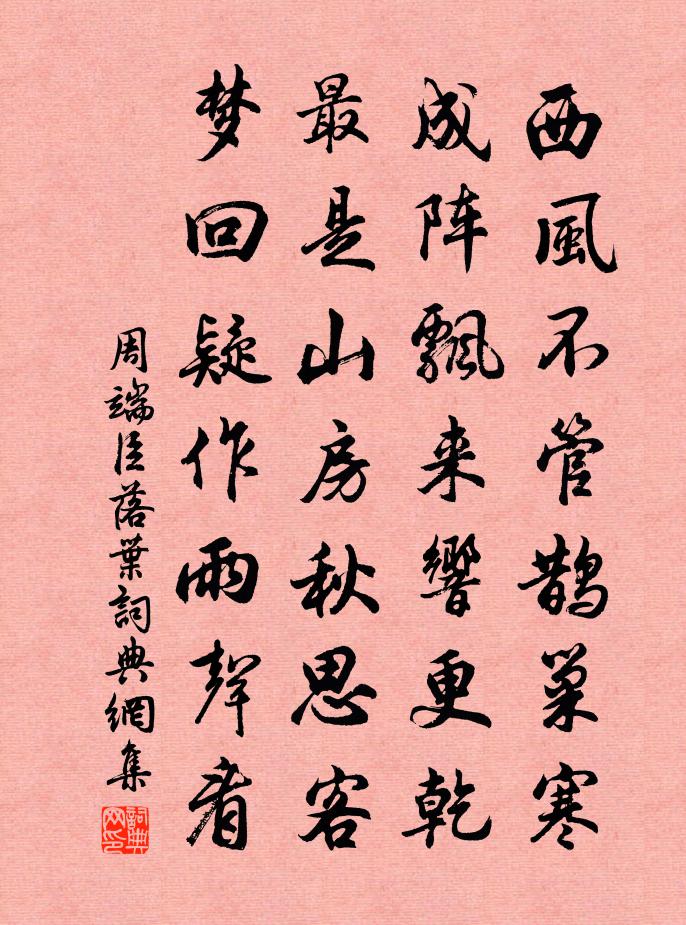 西風不管鵲巢寒
成阵飄来響更乾
最是山房秋思客
梦回疑作雨聲看
周端臣落葉詞典網集
詞典网印